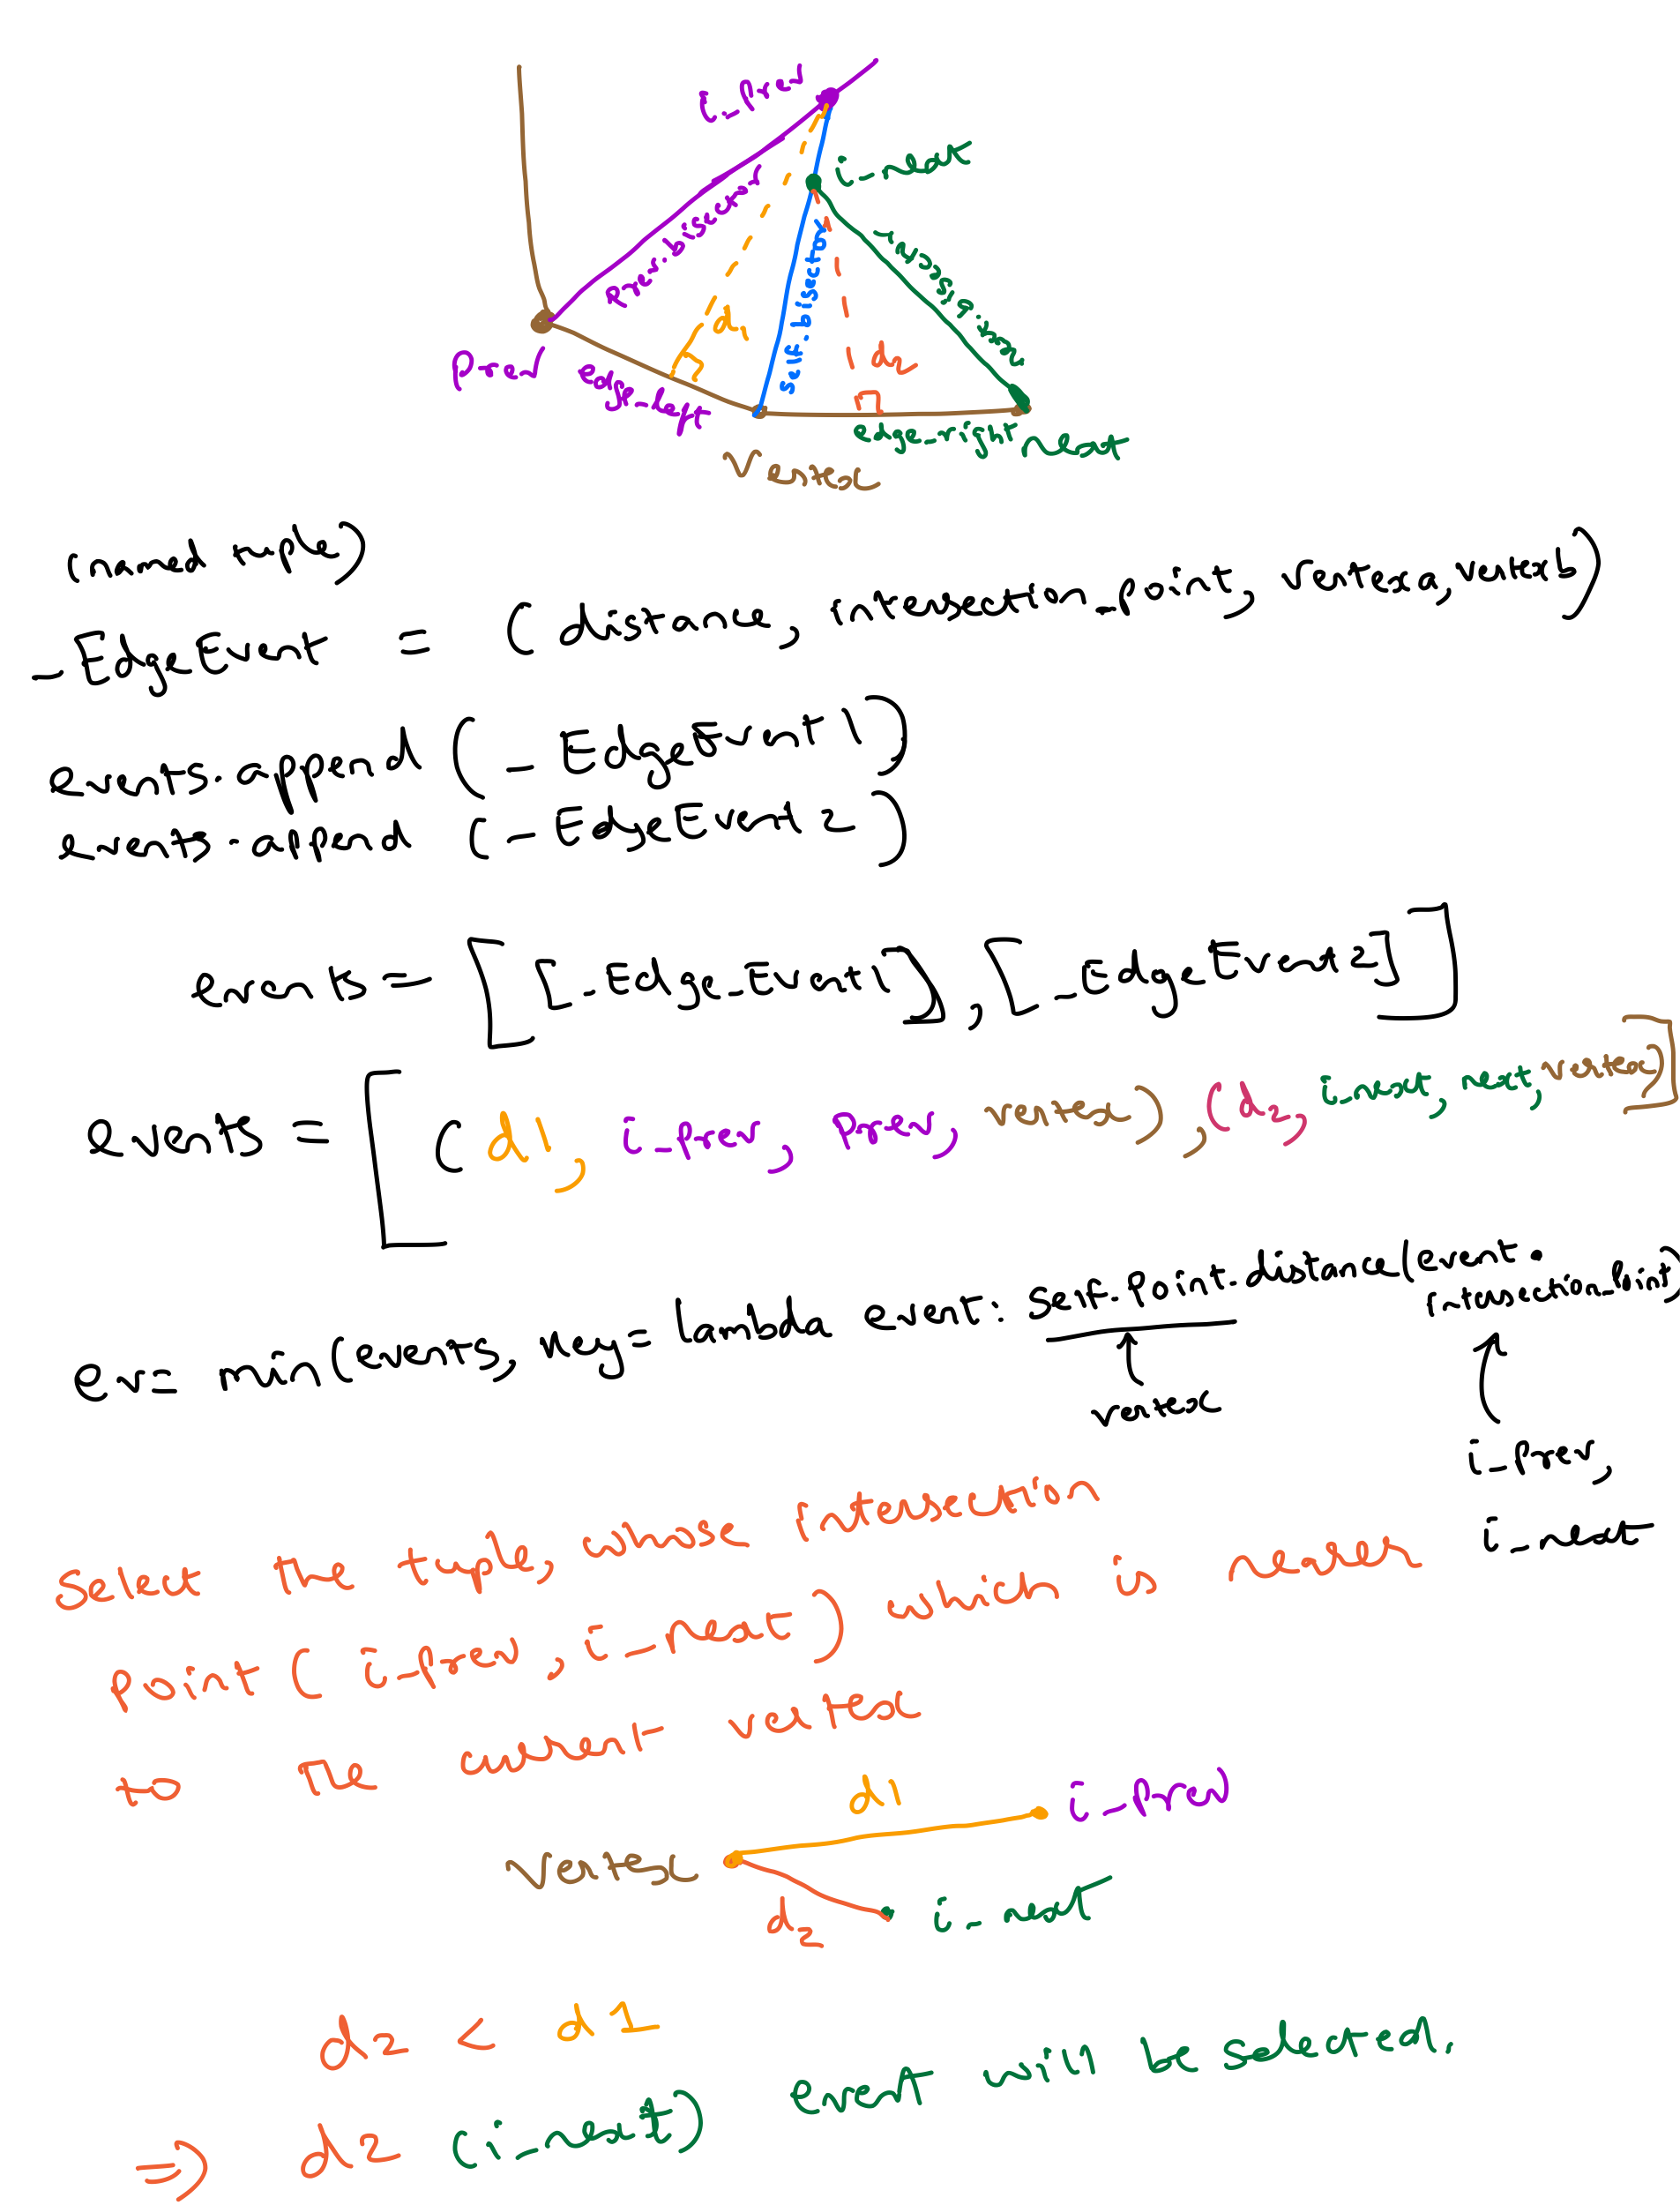 i_prev
i_next
prev.bisector
self.bisector
next.bisector
d1
d2
prev
edge_left
edge_right
next
Vertex
(named tuple)
_EdgeEvent = (distance, intersection_point, vertexa, vertexb)
events.append (_EdgeEvent1)
events.append (_EdgeEvent2)
events = [[_Edge_Event1], [_EdgeEvent2]]
events = [(d1, i_prev, prev, vertex), (d2, i_next, next, vertex)]
ev= min(events, key= lambda event: self.point.distance(event.
intersection_point)
vertex
i_prev,
i_next
select the tuple, whose intersection
point (i_prev, i_next) which is nearer
to the current vertex
d1
i_prev
Vertex
d2
i_next
d2 < d1
⇒ d2 (i_next) event will be selected.